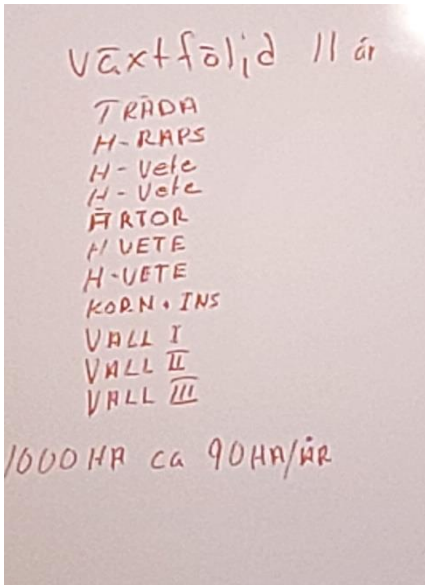 växtföljd 11 år
TRÄDA
H-RAPS
H-Vete
H-Vete
ÄRTOR
H VETE
H-VETE
KORN + INS
VALL I
VALL II
VALL III
1000 HA ca 90 HA/ÅR